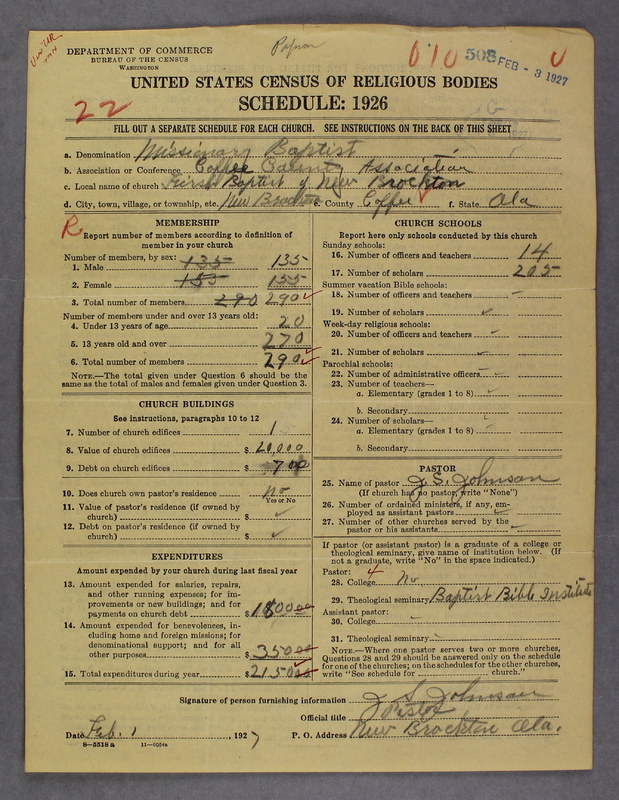 DEPARTMENT OF COMMERCE
BUREAU OF THE CENSUS
WASHINGTON
010 508 FEB - 3 1927
UNITED STATES CENSUS OF RELIGIOUS BODIES
22
SCHEDULE: 1926
FILL OUT A SEPARATE SCHEDULE FOR EACH CHURCH. SEE INSTRUCTIONS ON THE BACK OF THIS SHEET
a. Denomination Missionary Baptist
b. Association or Conference Coffee County Association
c. Local name of church First Baptist of New Brockton
d. City, town, village, or township, etc. New Brockton County Coffee f. State Ala
R
MEMBERSHIP
Report number of members according to definition of
member in your church
Number of members, by sex:
1. Male 135 135
2. Female 155 155
3. Total number of members 290 290
Number of members under and over 13 years old:
4. Under 13 years of age 20
5. 13 years old and over 270
6. Total number of members 290
NOTE.—The total given under Question 6 should be the
same as the total of males and females given under Question 3.
CHURCH BUILDINGS
See instructions, paragraphs 10 to 12
7. Number of church edifices 1
8. Value of church edifices $ 20,000
9. Debt on church edifices $ 700
10. Does church own pastor's residence no
Yes or No
11. Value of pastor's residence (if owned by
church) $
12. Debt on pastor's residence (if owned by
church) $
EXPENDITURES
Amount expended by your church during last fiscal year
13. Amount expended for salaries, repairs,
and other running expenses; for im-
provements or new buildings; and for
payments on church debt $ 1800 00
14. Amount expended for benevolences, in-
cluding home and foreign missions; for
denominational support; and for all
other purposes $ 350 00
15. Total expenditures during year $ 2150 00
CHURCH SCHOOLS
Report here only schools conducted by this church
Sunday schools:
16. Number of officers and teachers 14
17. Number of scholars 205
Summer vacation Bible schools:
18. Number of officers and teachers
19. Number of scholars
Week-day religious schools:
20. Number of officers and teachers
21. Number of scholars
Parochial schools:
22. Number of administrative officers
23. Number of teachers—
a. Elementary (grades 1 to 8)
b. Secondary
24. Number of scholars—
a. Elementary (grades 1 to 8)
b. Secondary
PASTOR
25. Name of pastor J. S. Johnson
(If church has no pastor, write "None")
26. Number of ordained ministers, if any, em-
ployed as assistant pastors
27. Number of other churches served by the
pastor or his assistants
If pastor (or assistant pastor) is a graduate of a college or
theological seminary, give name of institution below. (If
not a graduate, write "No" in the space indicated.)
Pastor: 4
28. College No
29. Theological seminary Baptist Bible Institute
Assistant pastor:
30. College
31. Theological seminary
NOTE.—Where one pastor serves two or more churches,
Questions 28 and 29 should be answered only on the schedule
for one of the churches; on the schedules for the other churches,
write "See schedule for church."
Signature of person furnishing information J. S. Johnson
Official title Pastor
Date Feb. 1, 1927 P. O. Address New Brockton Ala.
8—5518 a 11—9054a